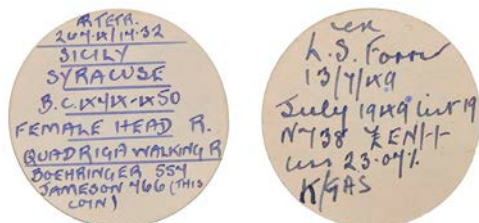 AR TETR.
267.4/17.32
SICILY
SYRACUSE
B.C. 474-450
FEMALE HEAD R.
QUADRIGA WALKING R
BOEHRINGER 554
JAMESON 766 (THIS
COIN)
ex
L.S. Forrer
13/7/49
July 1949 list 19
Nº738 £EN/-/-
less
K/GAS